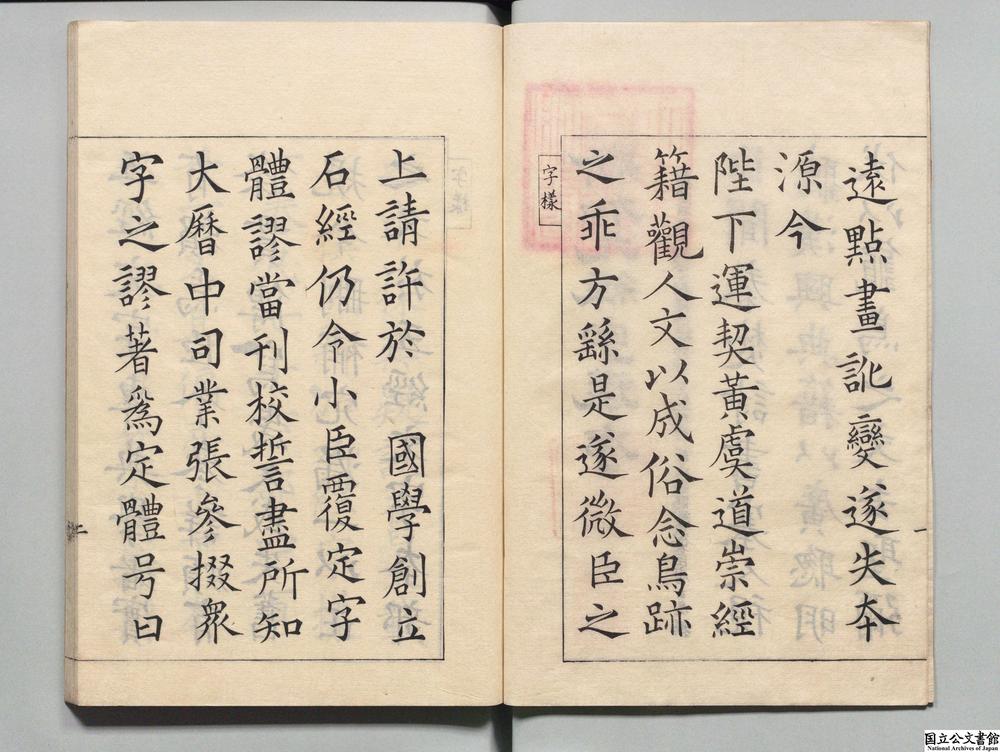 遠點畫訛變遂失夲
源今
陛下運契黃虞道崇經
籍觀人文以成俗念鳥跡
之乖方繇是遂微臣之
字樣
一
上請許於國學創立
石經仍令小臣覆定字
體謬當刊校誓盡所知
大曆中司業張參掇衆
字之謬著爲定體号曰
二
国立公文書館
National Archives of Japan